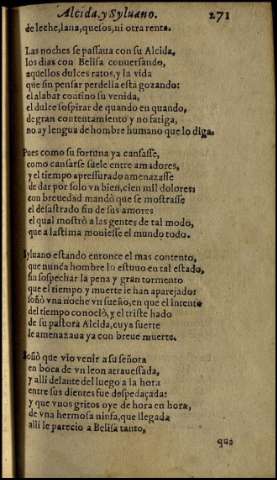 Alcida, y Syluano. 271
de leche, lana, quesos, ni otra renta.
Las noches se passaua con su Alcida,
los dias con Belisa conuersando,
aquellos dulces ratos, y la vida
que sin pensar perdella està gozando:
el alabar contino su venida,
el dulce sospirar de quando en quando,
de gran contentamiento y no fatiga,
no ay lengua de hombre humano que lo diga.
Pues como su fortuna ya cansasse,
como cansarse suele entre amadores,
y el tiempo apressurado amenazasse
de dar por solo vn bien, cien mil dolores:
con breuedad mandò que se mostrasse
el desastrado fin de sus amores
el qual mostrò a las gentes de tal modo,
que a lastima mouiesse el mundo todo.
Syluano estando entonce el mas contento,
que nunca hombre lo estuuo en tal estado,
sin sospechar la pena y gran tormento
que el tiempo y muerte le han aparejado:
soñò vna noche vn sueño, en que el intento
del tiempo conociò, y el triste hado
de su pastora Alcida, cuya suerte
le amenazaua ya con breue muerte.
Soñò que vio venir a su señora
en boca de vn leon atrauessada,
y alli delante del luego a la hora
entre sus dientes fue despedaçada:
y que vnos gritos oye de hora en hora,
de vna hermosa ninfa, que llegada
alli le parecio a Belisa tanto,
que